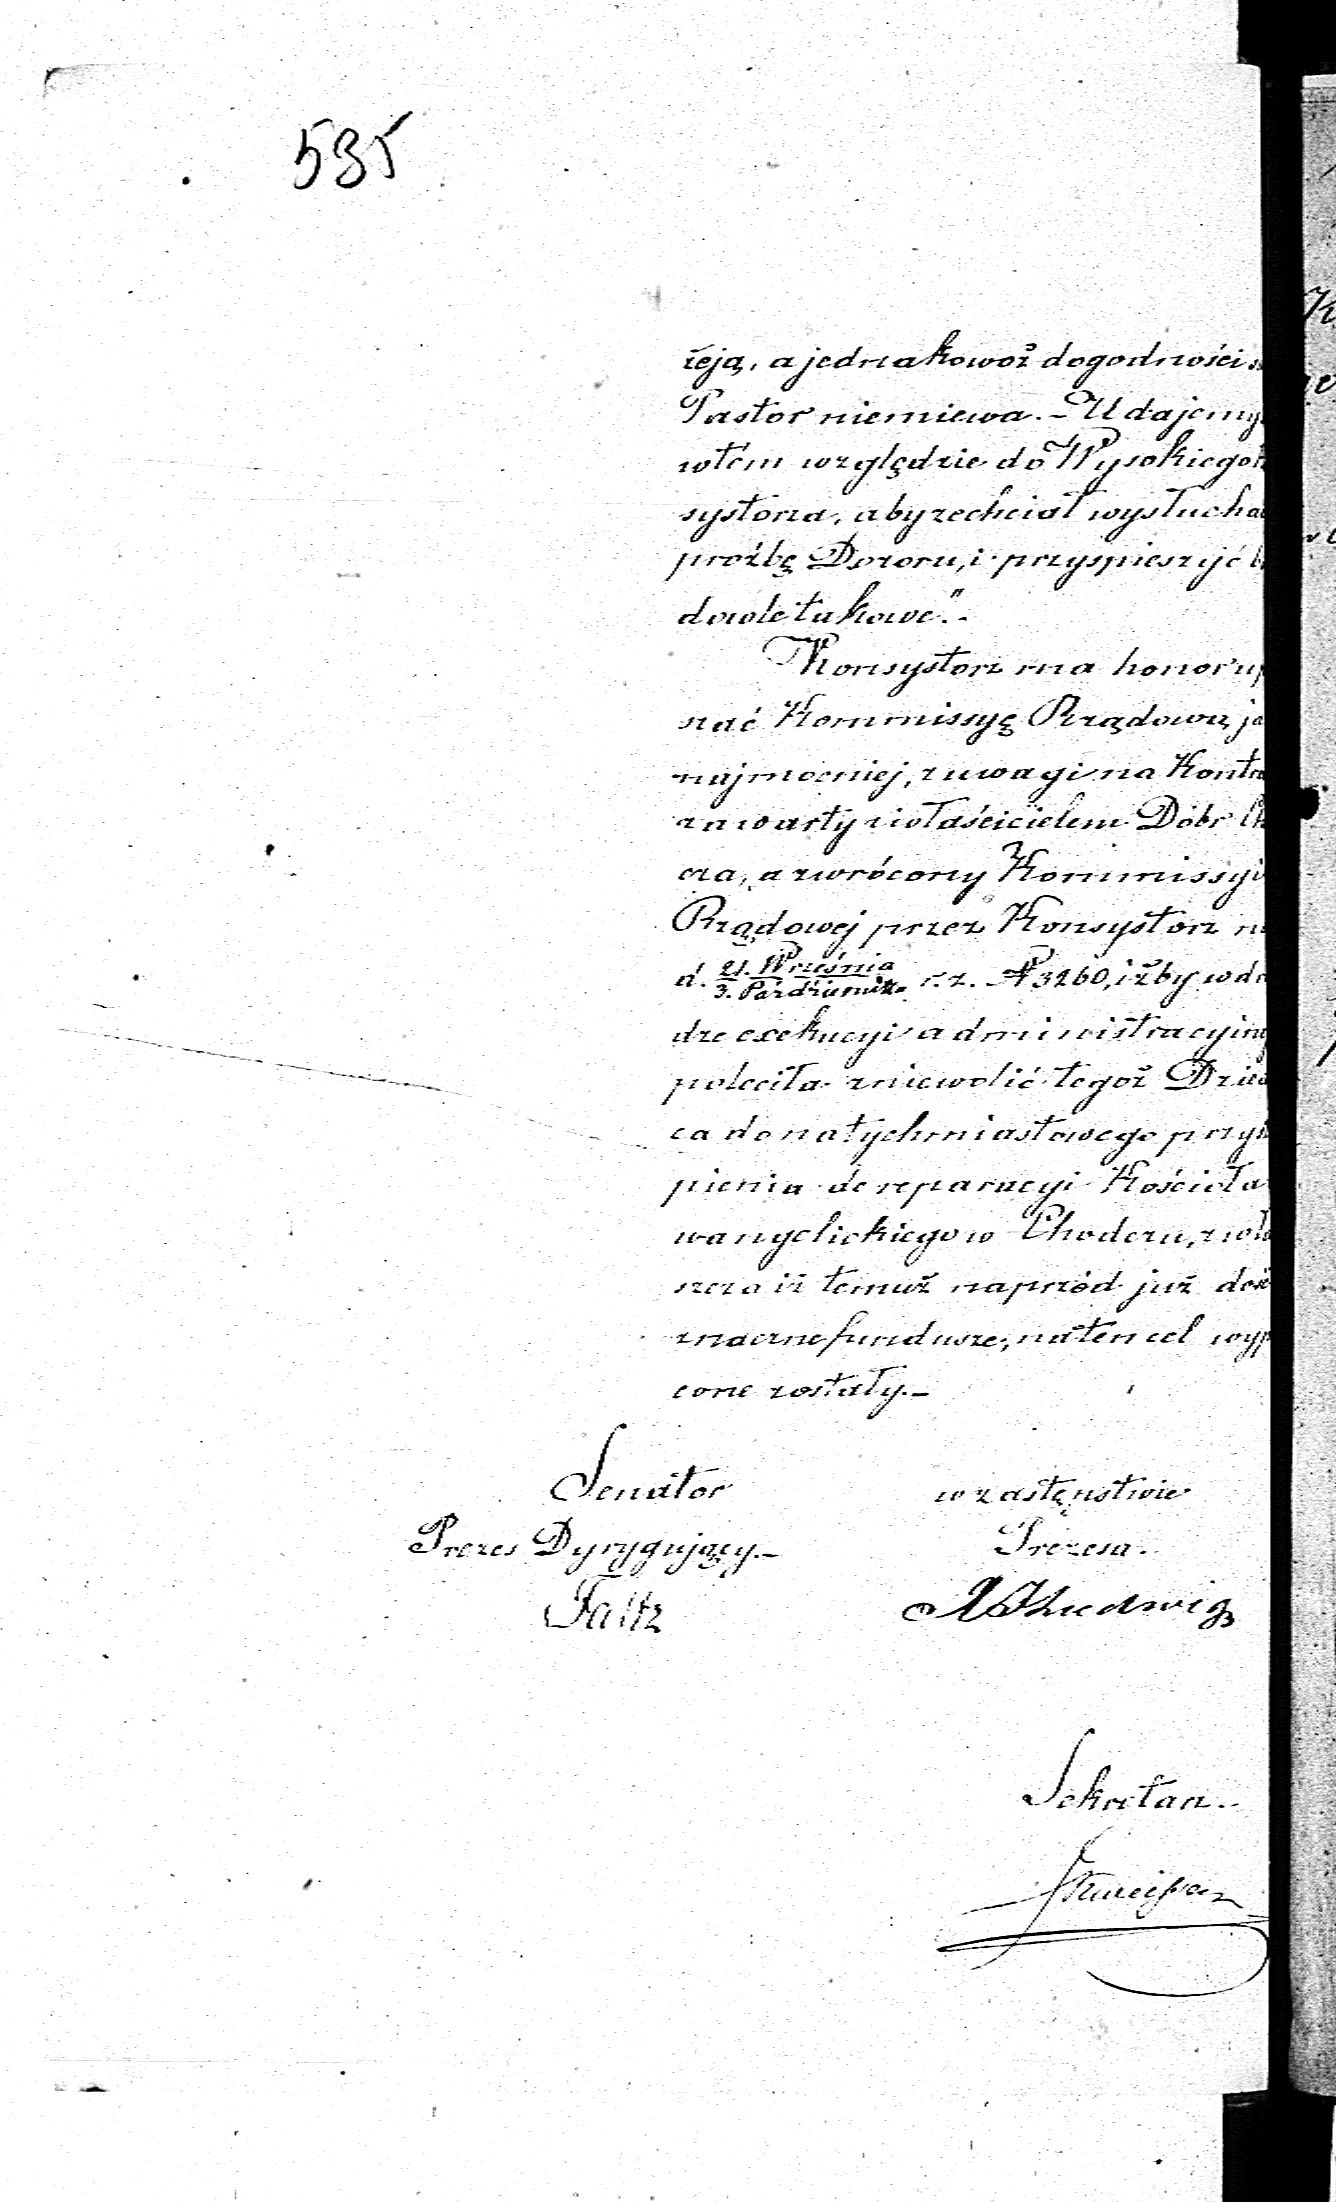 535
żeją, a jednakowoż dogodności
Pastor niemiewa. – Udajemy
wtem względzie do Wysokiego
systorza, aby zechciał wysłucha
proźbę Dozoru, i przyspieszyć
dowle takowe".
Konsystorz ma honor up
szać Kommissyę Rządową, ja
najmocniej, z uwagi na Kontra
zawarty z właścicielem Dóbr
cza, a zwrócony Kommissyi
Rządowej przez Konsystorz
d. 21. Września / 3. Październik. r. z. N 3260, iżby w dro
dze exekucyi administracyjnej
poleciła zniewolić tegoż Dzied
ca do natychmiastowego przyst
pienia do reparacyi Kościoła
wangelickiego w Chodczu, zwła
szcza iż temuż naprzód już dość
znaczne fundusze, na ten cel wyp
cone zostały. –
Senator
w zastępstwie
Prezes Dyrygujący. –
Prezesa.
Faltz
Ludwig
Sekretarz.